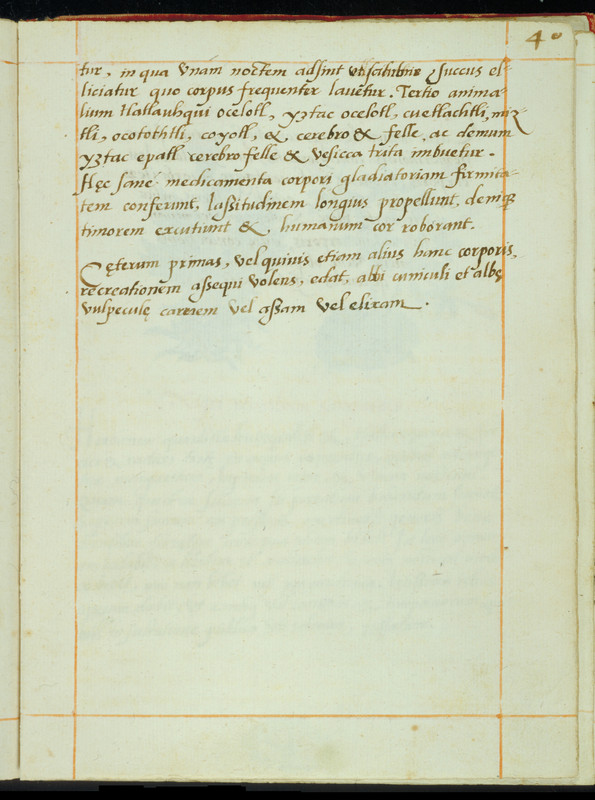 40
tur, in qua vnam noctem adsint succus el-
liciatur quo corpus frequenter lauẽtur. Tertio anima-
lium tlatlauhqui ocelotl, yztac ocelotl, cuetlachtli, miz-
tli, ocotochtli, coyotl, &, cerebro & felle, ac demum
yztac epatl cerebro felle & vesicca trita imbuetur.
Hęc sane medicamenta corpori gladiatoriam firmita-
tem conferunt, lassitudinem longius propellunt, deniq3
timorem excutiunt &, humanum cor roborant.
Cęterum primas, vel quinis etiam alius hanc corporis
recreationem assequi volens, edat, albi cuniculi et albę
vulpeculę carnem vel assam vel elixam.